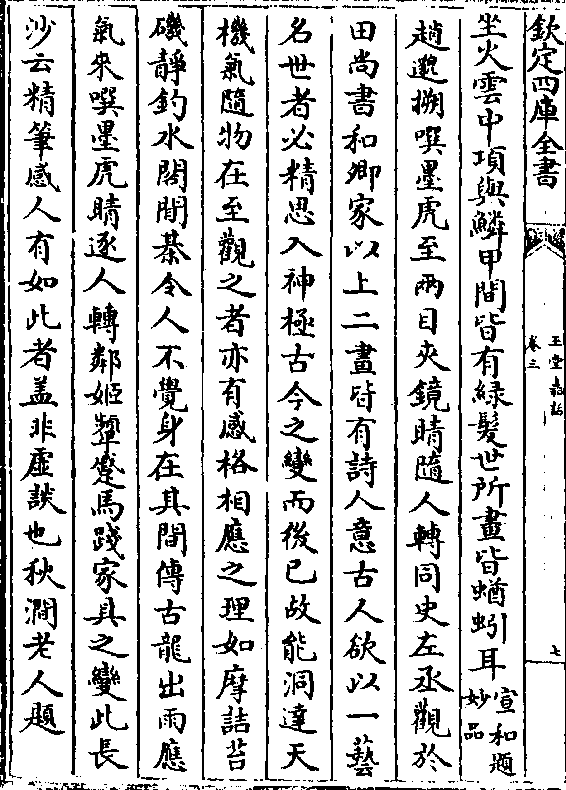 欽定四庫全書
玉堂嘉話
卷三
七
坐火雲中項與鱗甲間皆有緑髮世所畫皆蝤蚓耳宣和題
妙品
趙邈搠噀墨虎至兩目夾鏡睛隨人轉同史左丞觀於
田尚書和卿家以上二畫皆有詩人意古人欲以一藝
名世者必精思入神極古今之變而後已故能洞達天
機氣隨物在至觀之者亦有感格相應之理如摩詰苔
磯靜釣水閣閒棊令人不覺身在其間傳古龍出雨應
氣來噀墨虎睛逐人轉鄰姬顰蹙馬踐家具之變此長
沙云精筆感人有如此者盖非虚談也秋澗老人題